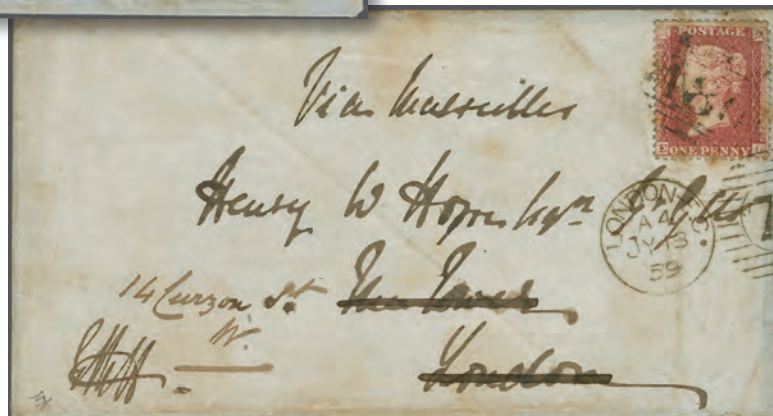 POSTAGE
ONE PENNY
Via Marseilles
Henry W Hope Esqre
LONDON E.C.
A 4
JY 13
59
14 Curzon St
W.
The Tower
London